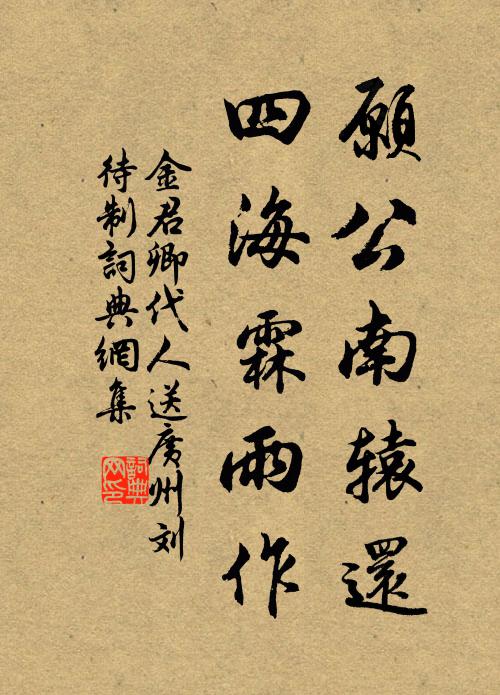 願公南辕還
四海霖雨作
金君卿代人送廣州刘
待制詞典網集
詞典
网印